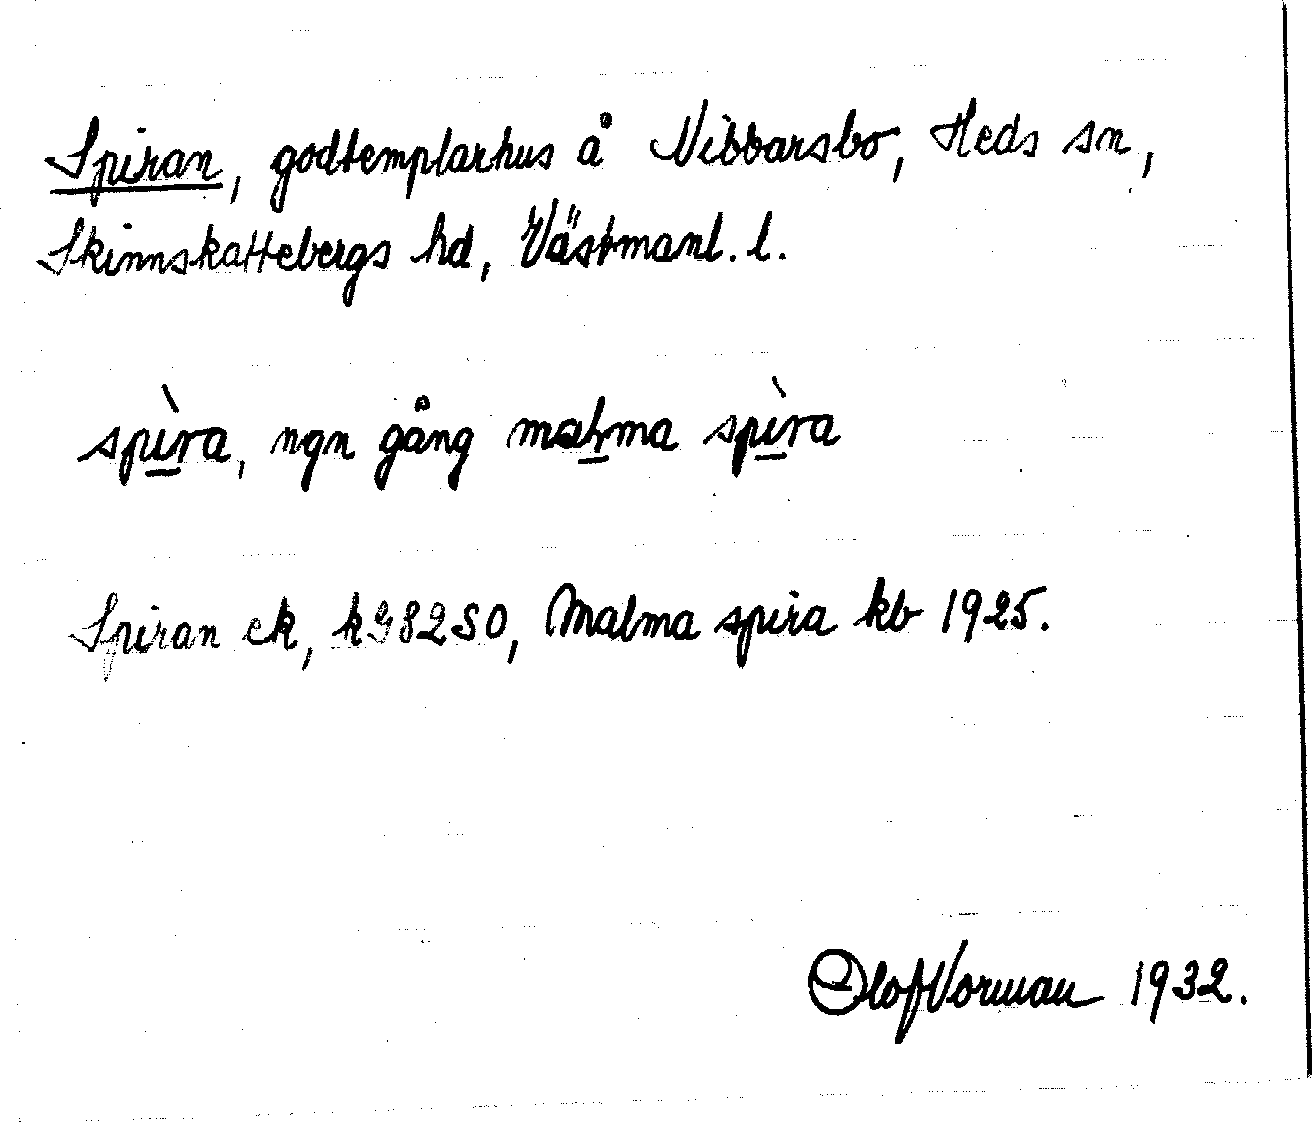 Spiran, godtemplarhus å Nibbarsbo, Heds sn,
Skinnskattebergs hd, Västmanl. l.
spìra, ngn gång malma spìra
Spiran ek, kG82SO, Malma spira kb 1925.
Olof Norman 1932.